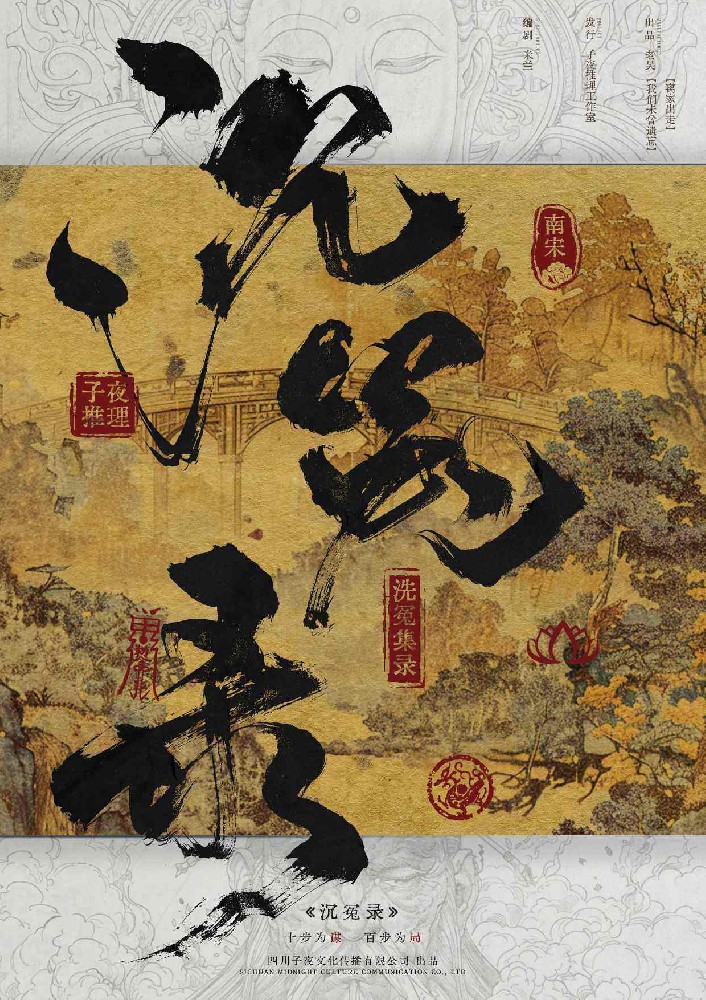 出品 老吴【我们未曾遗忘】
【离家出走】
发行 子夜推理工作室
编剧 米兰
沉冤录
南宋
子夜
推理
洗冤集录
《沉冤录》
十步为谋 百步为局
四川子夜文化传播有限公司 出品
SICHUAN MIDNIGHT CULTURE COMMUNICATION CO., LTD